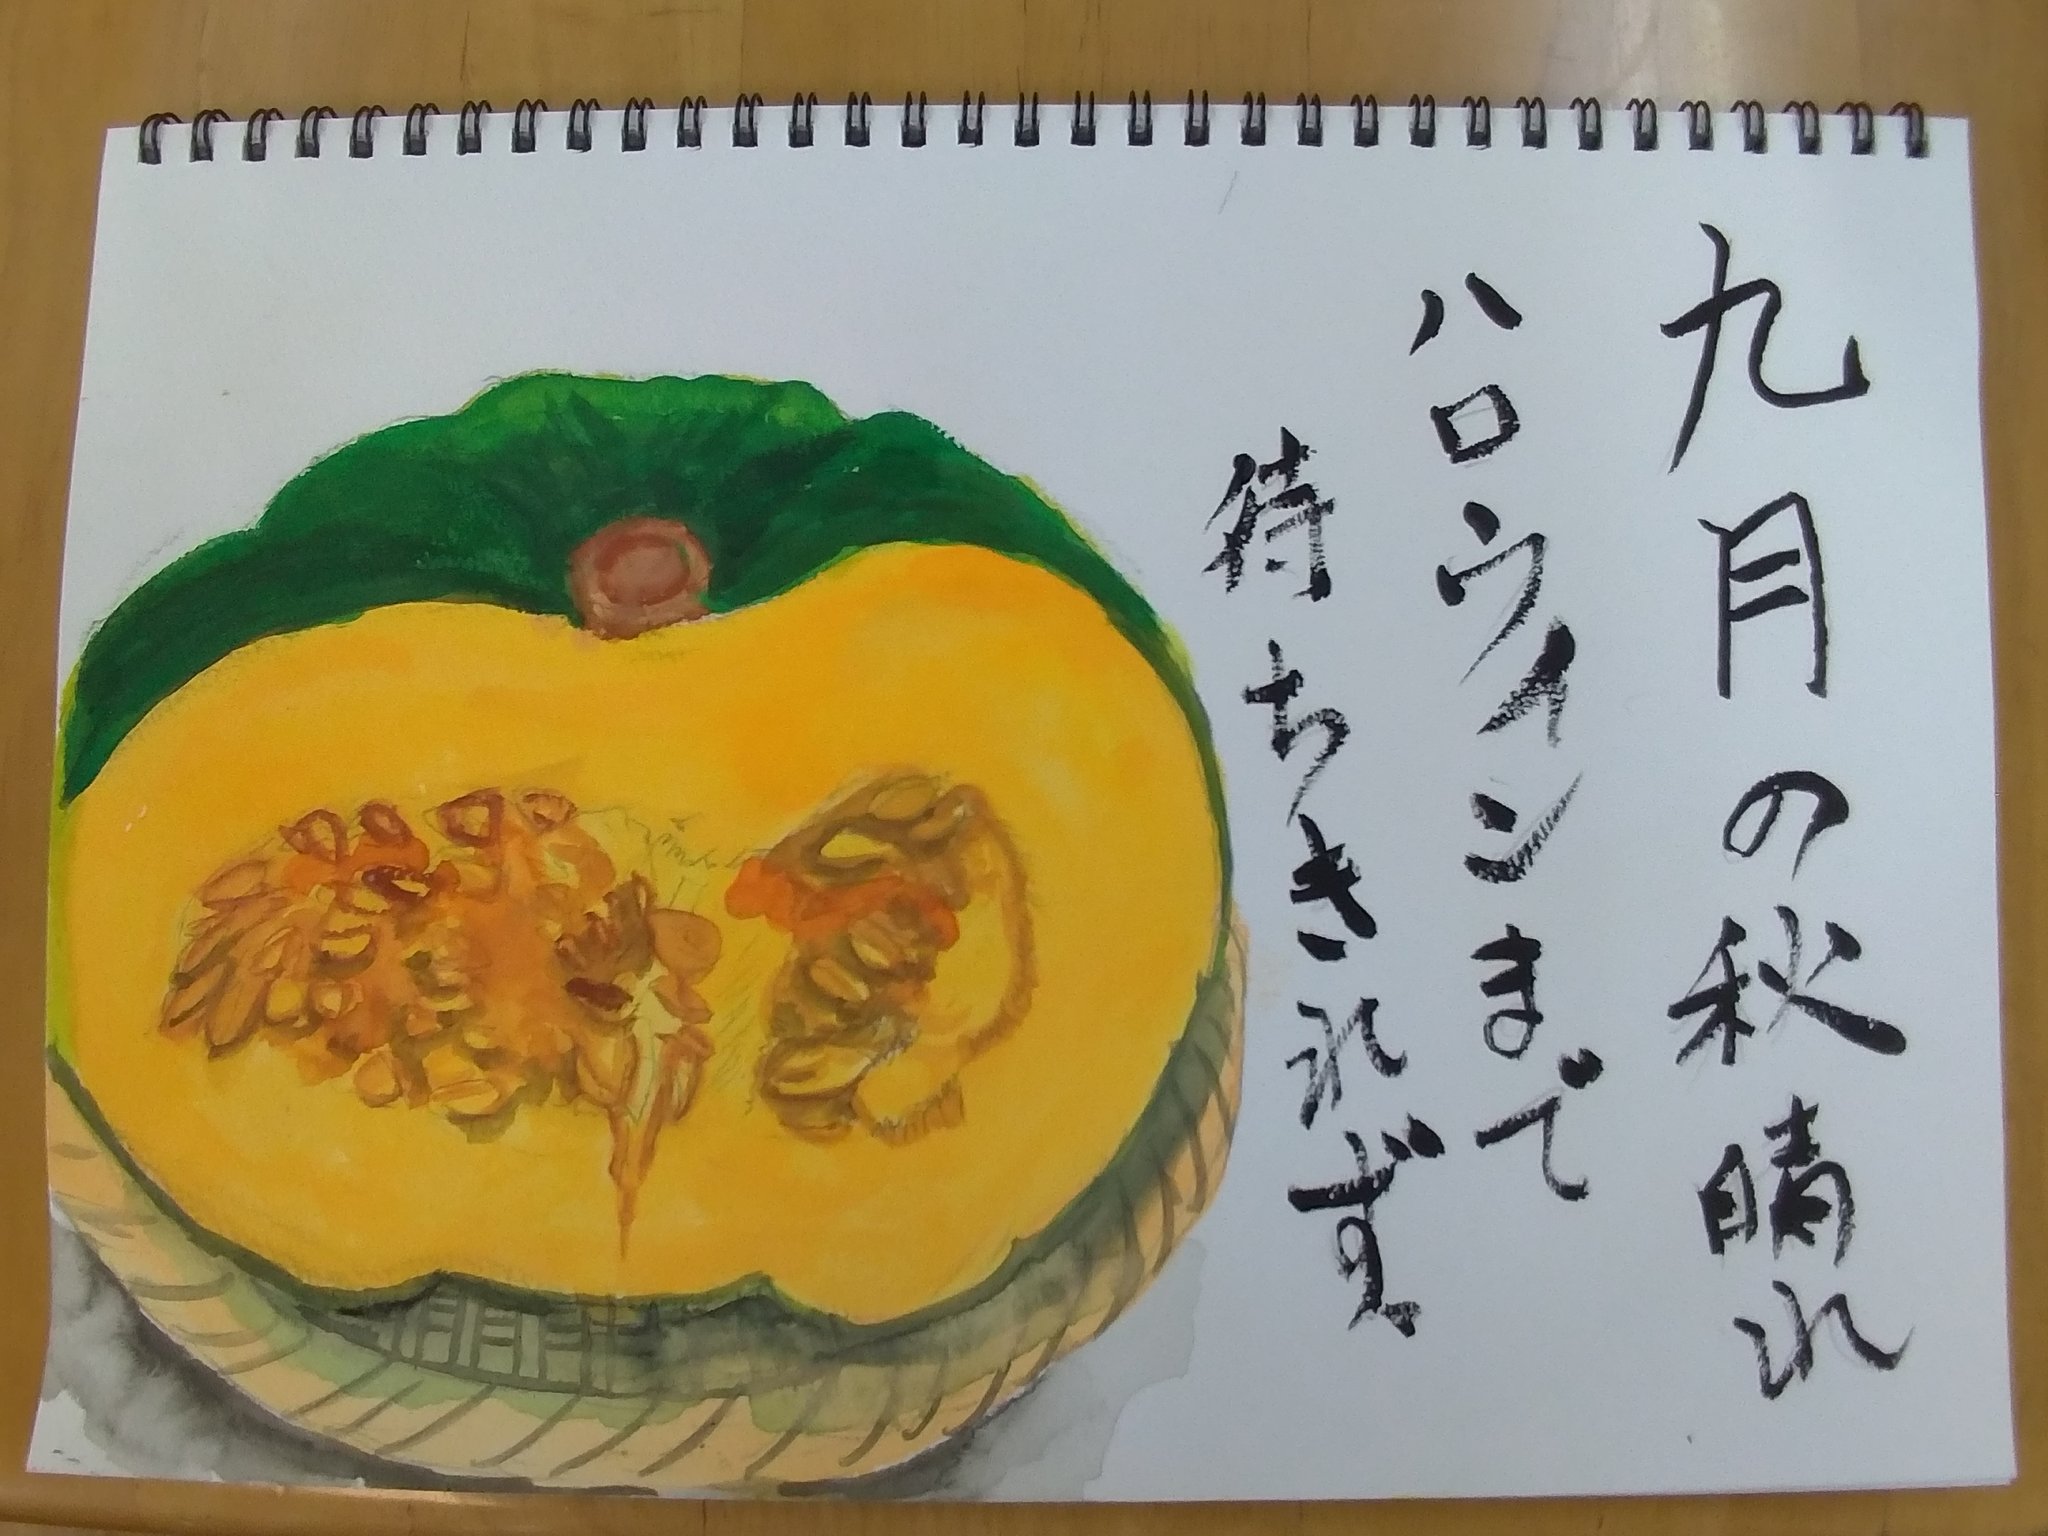 九月の秋晴れ
ハロウィンまで
待ちきれず